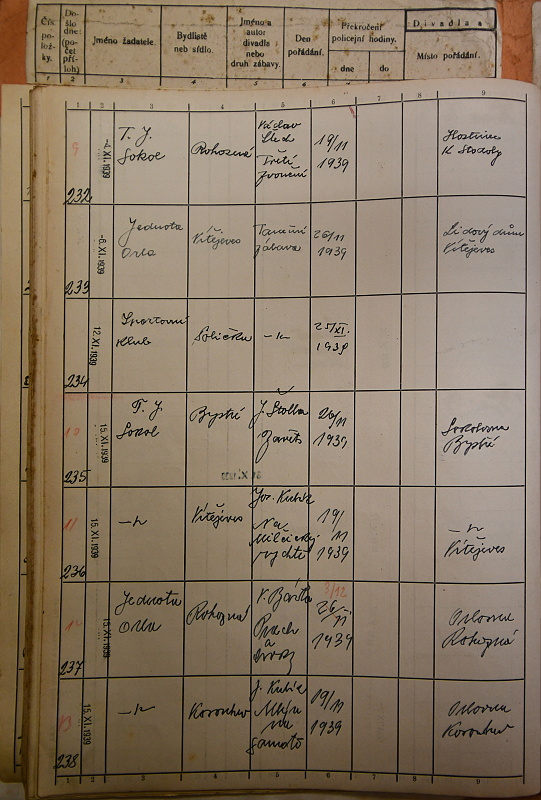 Čís. po- lož- ky.
Do- šlo dne: (po- čet pří- loh)
Jméno žadatele.
Bydliště neb sídlo.
Jméno a autor divadla nebo druh zábavy.
Den pořádání.
Překročení policejní hodiny.
dne
do
Divadla a
Místo pořádání.
1 2 3 4 5 6 7 8 9
9
232
-4. XI. 1939
T. J.
Sokol
Rohozná
Václav
Štech
Třetí
zvonění
19/11
1939
Hostinec
K Stodoly
233
-6. XI. 1939
Jednota
Orla
Vítějeves
Taneční
zábava
26/11
1939
Lidový dům
Vítějeves
234
12. XI. 1939
Sportovní
klub
25/XI.
1939
10
235
15. XI. 1939
T. J.
Sokol
Bystré
J. Štolba
Závěť
26/11
1939
Sokolovna
Bystré
11
236
15. XI. 1939
Vítějeves
Jos. Kubík
Na
rychtě
19/
11
1939
Vítějeves
237
15. XI. 1939
Jednota
Orla
Rohozná
V. Bárta
a
3/12
26/
11
1939
Orlovna
Rohozná
13
238
15. XI. 1939
Korouhev
J. Kubík
Mlýn
na
samotě
19/11
1939
Orlovna
Korouhev
1 2 3 4 5 6 7 8 9